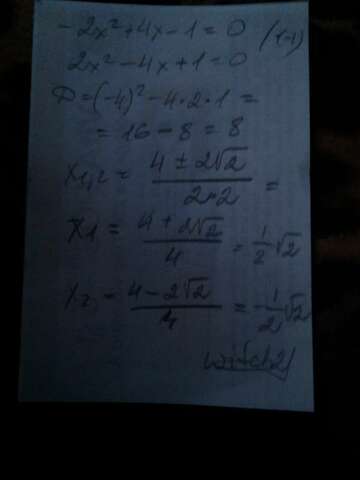 - 2x² + 4x - 1 = 0 /(-1)
2x² - 4x + 1 = 0
D = (-4)² - 4 * 2 * 1 =
= 16 - 8 = 8
x1,2 = (4 ± 2√2)/(2*2) =
x1 = (4 + 2√2)/4 = 1/2 √2
x2 = (4 - 2√2)/4 = -1/2 √2